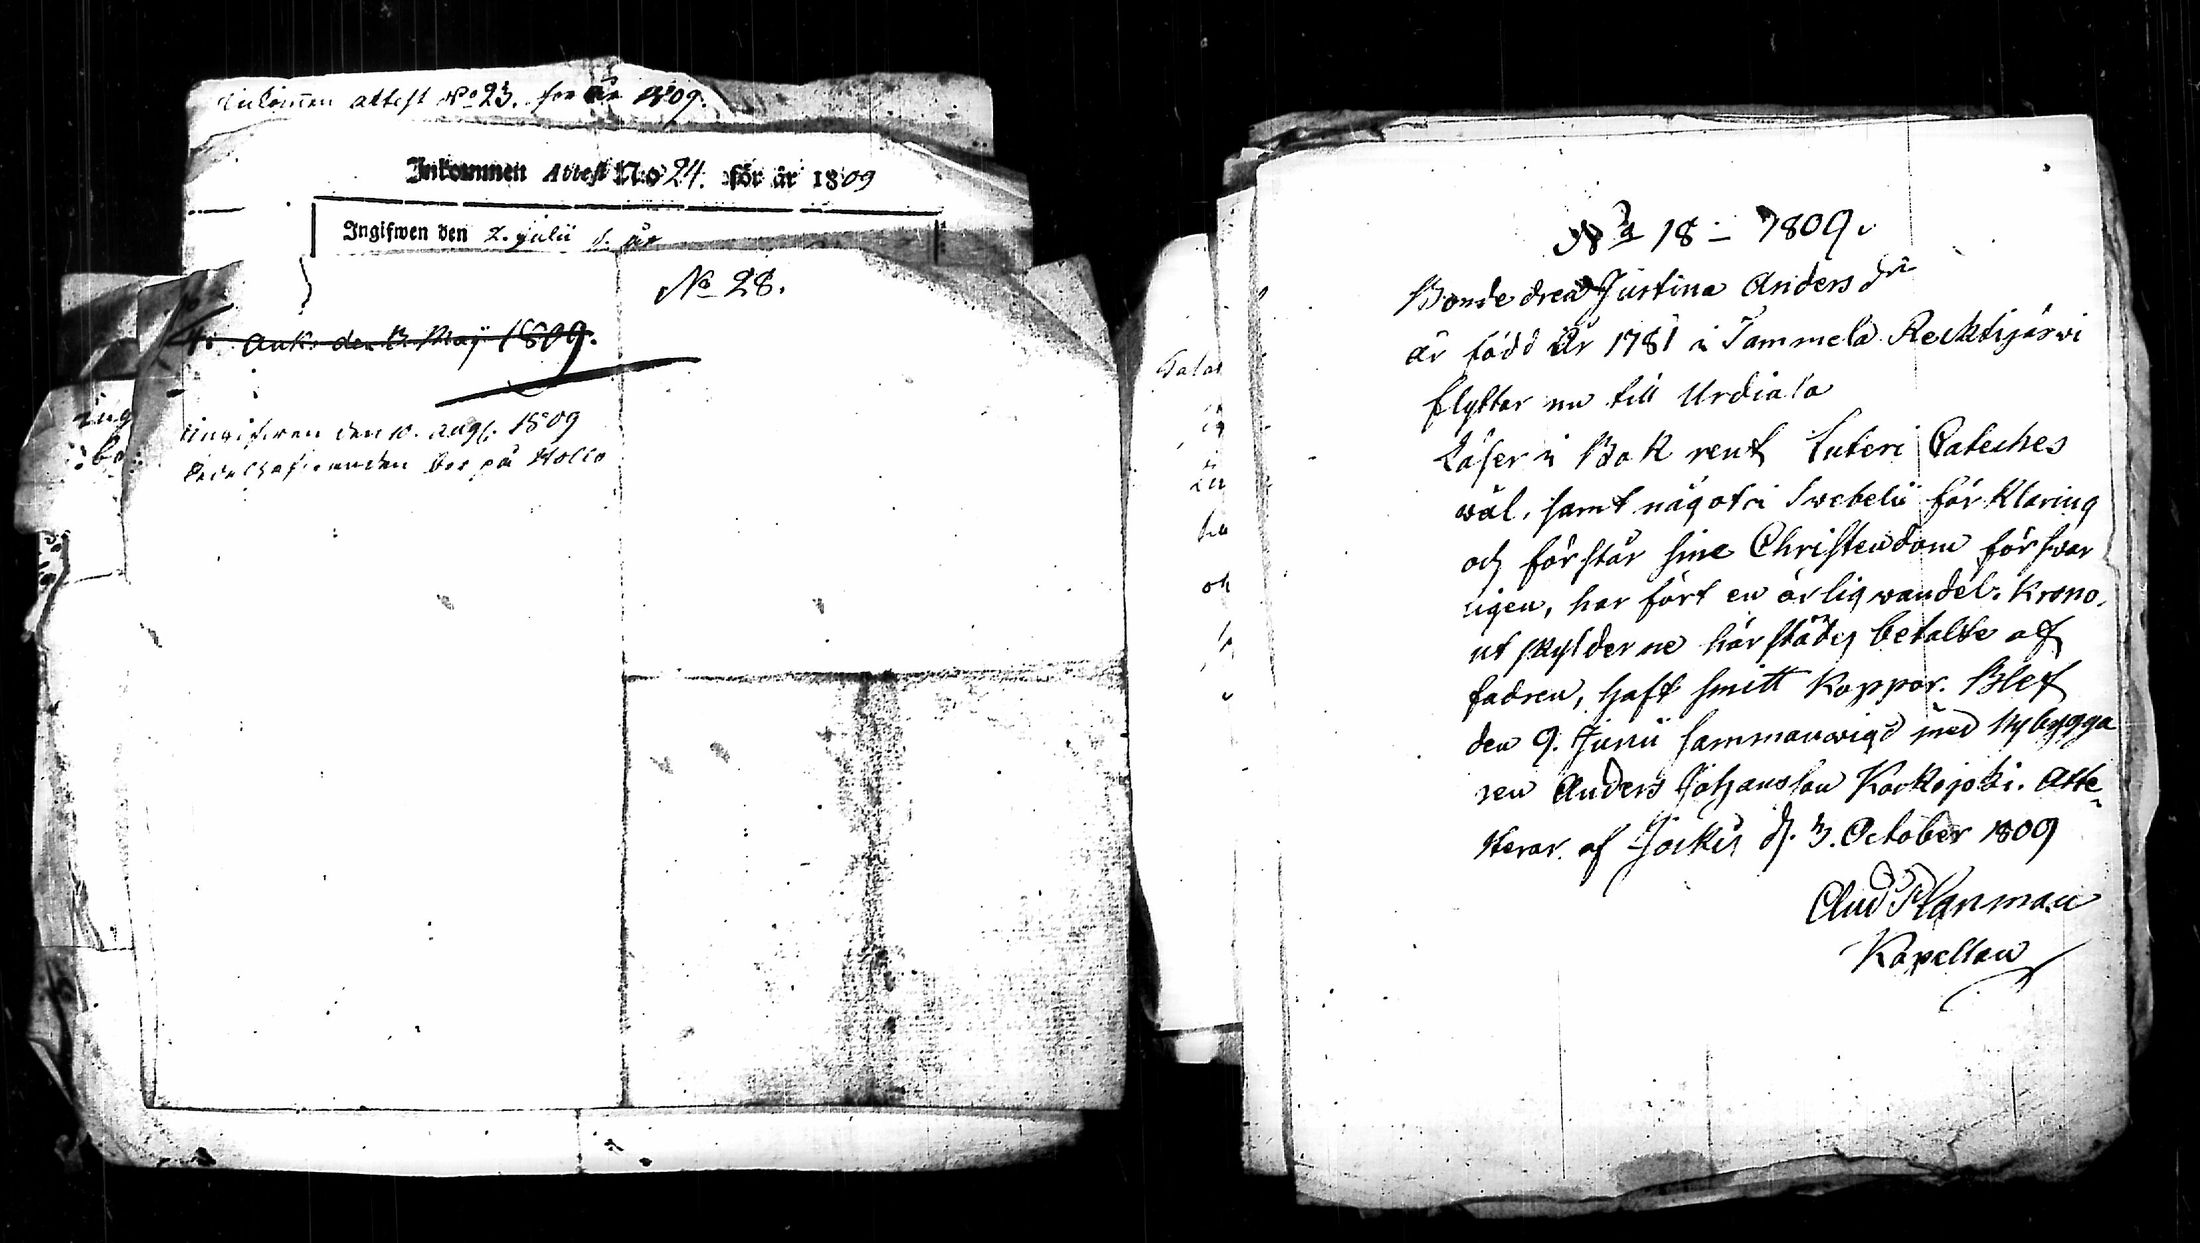 Inkom̄en attest No 23. för år 1809.
Inkommen Attest N:o 24. för år 1809
Ingifwen den 2. julii d. år
No 28.
Ank: den 13 Maÿ 1809.
Ingifwen den 10. aug. 1809
på Hollo
No 18 – 1809.
Bonde dren Justina Andersdr
är född År 1781 i Tammela Recktijärwi
flyttar nu till Urdiala
Läser i Bok rent Luteri Cateches
wäl, samt något i Swebelii förklaring
och förstår sine Christendom försvar
ligen, har fört en ärlig wandel. Krono
utskylderne härstädes betalte af
fadren, haft smitt koppor. Blef
den 9. Junii sammanwigd med Nybygga
ren Anders Johansson Kockojoki. Atte
sterar. af Jockis d. 3. October 1809
Planman
Kapellan